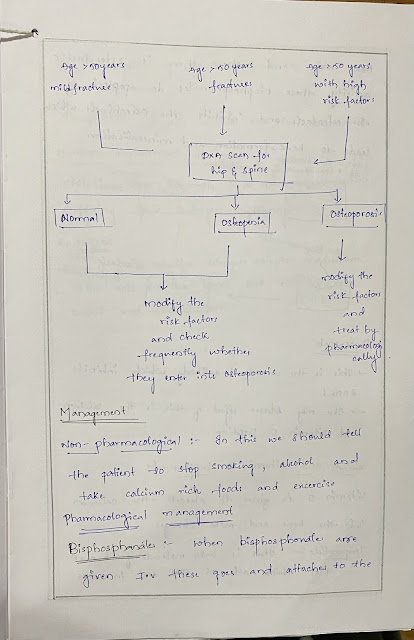 Age >50 years
mild fracture
Age >50 years
fractures
Age >50 years
with high
risk factors
DXA Scan for
hip & spine
Normal
Osteopenia
Osteoporosis
Modify the
risk factors
and check
frequently whether
they enter into Osteoporosis
modify the
risk factors
and
treat by
pharmacologi
cally
Management
Non-pharmacological :- In this we should tell
the patient to stop smoking, alcohol and
take calcium rich foods and excercise
Pharmacological management
:- When bisphosphonates are
given IV these goes and attaches to the